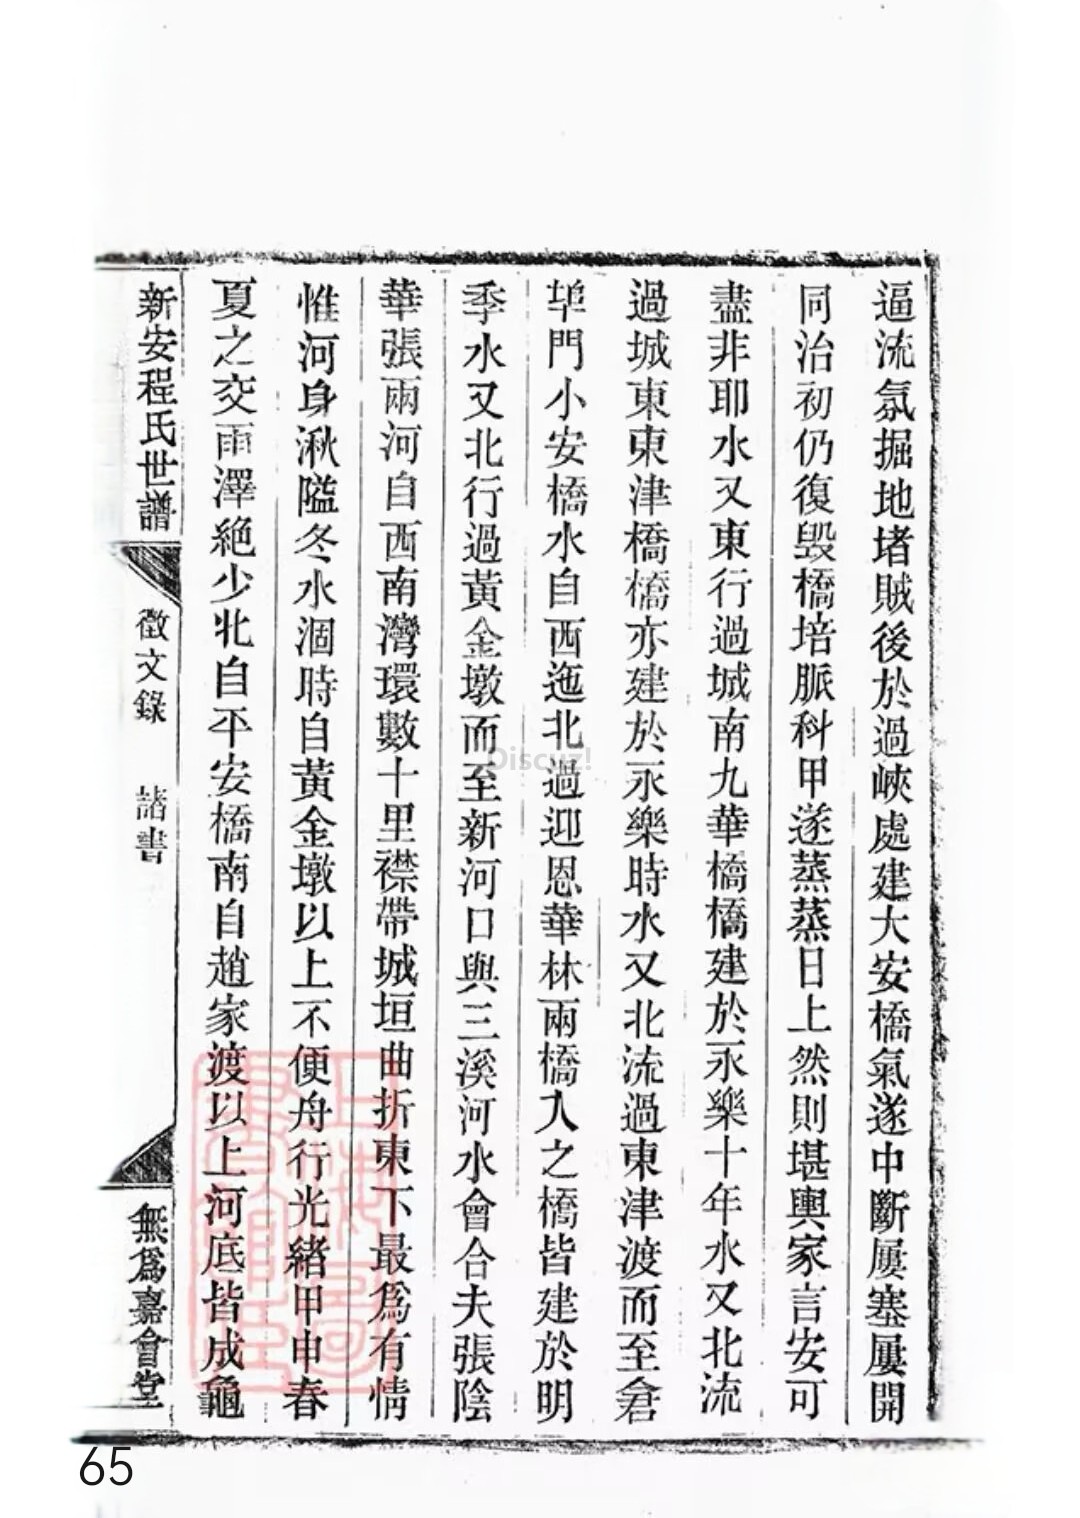 逼流氛掘地堵賊後於過峽處建大安橋氣遂中斷屢塞屢開
同治初仍復毀橋培脈科甲遂蒸蒸日上然則堪輿家言安可
盡非耶水又東行過城南九華橋橋建於永樂十年水又北流
過城東東津橋橋亦建於永樂時水又北流過東津渡而至倉
埠門小安橋水自西迤北過迎恩華林兩橋入之橋皆建於明
季水又北行過黃金墩而至新河口與三溪河水會合夫張陰
華張兩河自西南灣環數十里襟帶城垣曲折東下最爲有情
惟河身湫隘冬水涸時自黃金墩以上不便舟行光緒甲申春
夏之交雨澤絕少北自平安橋南自趙家渡以上河底皆成龜
新安程氏世譜
徵文錄 諸書
無爲嘉會堂
上海圖書館藏
Discuz!
65